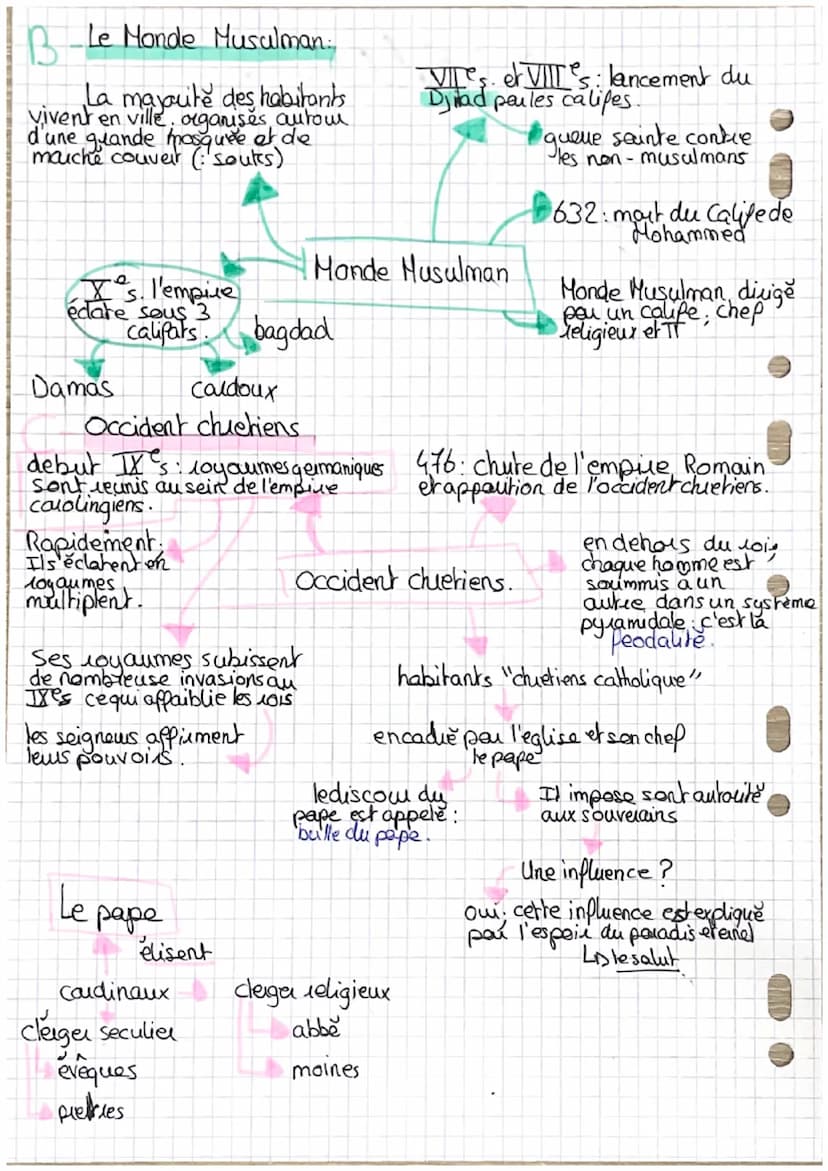 B - Le Monde Musulman:
La majorité des habitants
vivent en ville, organisés autour
d'une grande mosquée et de
marché couvert (: souks)
VIIes. et VIIIes: lancement du
Djiad par les califes.
guerre sainte contre
les non-musulmans
632: mort du Calife de
Mohammed
Monde Musulman
Xes. l'empire
éclate sous 3
califats.
bagdad
Monde Musulman, dirigé
par un calife; chef
religieux et π
Damas
Cardoux
C - Occident chretiens
debut IXes: royaumes germaniques
sont reunis au sein de l'empire
carolingiens.
476: chute de l'empire Romain
et apparition de l'occident chretiens.
Rapidement:
Ils éclatent en
royaumes
multiplent.
Occident chretiens.
en dehors du roi,
chaque homme est
soummis à un
autre dans un système
pyramidale: c'est la
feodalité.
Ses royaumes subissent
de nombreuse invasions au
IXes ce qui affaiblie les rois
habitants "chretiens catholique"
les seigneurs affirment
leurs pouvoirs.
encadré par l'eglise et son chef
le pape
le discour du
pape est appelé:
bulle du pape.
Il impose sont autorité
aux souverains
Une influence?
oui: cette influence est expliqué
par l'espoir du paradis eternel
↳ le salut
Le pape
élisent
cardinaux
clerger religieux
clérger seculier
abbé
évêques
moines
pretres